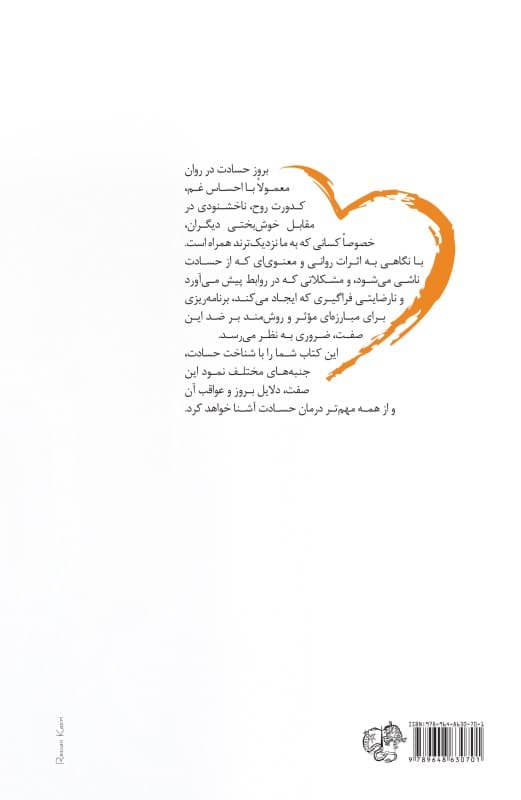 بروز حسادت در روان
معمولاً با احساس غم،
کدورت روح، ناخشنودی در
مقابل خوش‌بختی دیگران،
خصوصاً کسانی که به ما نزدیک‌ترند همراه است.
با نگاهی به اثرات روانی و معنوی‌ای که از حسادت
ناشی می‌شود، و مشکلاتی که در روابط پیش می‌آورد
و نارضایتی فراگیری که ایجاد می‌کند، برنامه‌ریزی
برای مبارزه‌ای مؤثر و روش‌مند بر ضد این
صفت، ضروری به نظر می‌رسد.
این کتاب شما را با شناخت حسادت،
جنبه‌های مختلف نمود این
صفت، دلایل بروز و عواقب آن
و از همه مهم‌تر درمان حسادت آشنا خواهد کرد.
ISBN: 978-964-8630-70-1
9 789648 630701